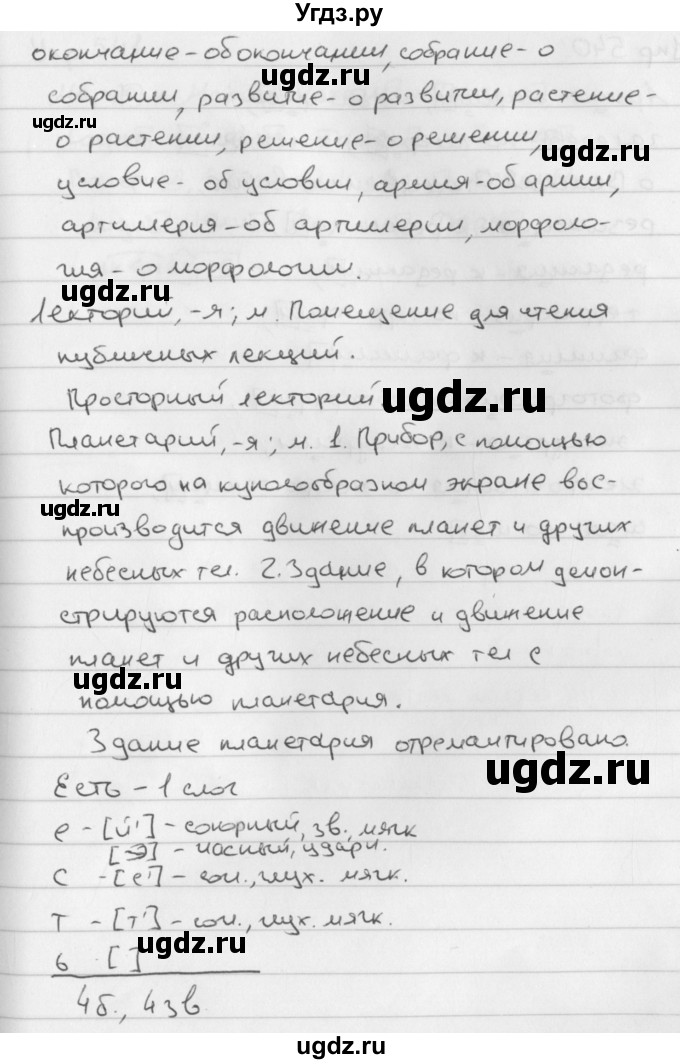 Угдз.ру
окончание - об окончании, собрание - о
собрании, развитие - о развитии, растение -
о растении, решение - о решении,
условие - об условии, армия - об армии,
артиллерия - об артиллерии, морфоло-
гия - о морфологии.
Лекторий, -я; м. Помещение для чтения
публичных лекций.
Просторный лекторий
Планетарий, -я; м. 1. Прибор, с помощью
которого на куполообразном экране вос-
производится движение планет и других
небесных тел. 2. Здание, в котором демон-
стрируются расположение и движение
планет и других небесных тел с
помощью планетария.
Здание планетария отремантировано.
Есть - 1 слог
е - [й'] - сонорный, зв., мягк
[э] - гласный, ударн.
с - [с'] - сог., глух. мягк.
т - [т'] - сог., глух. мягк.
ь [ ]
4б., 4зв
ugdz.ru
ugdz.ru
ugdz.ru
ugdz.ru
ugdz.ru
ugdz.ru
ugdz.ru
ugdz.ru
ugdz.ru
ugdz.ru
ugdz.ru